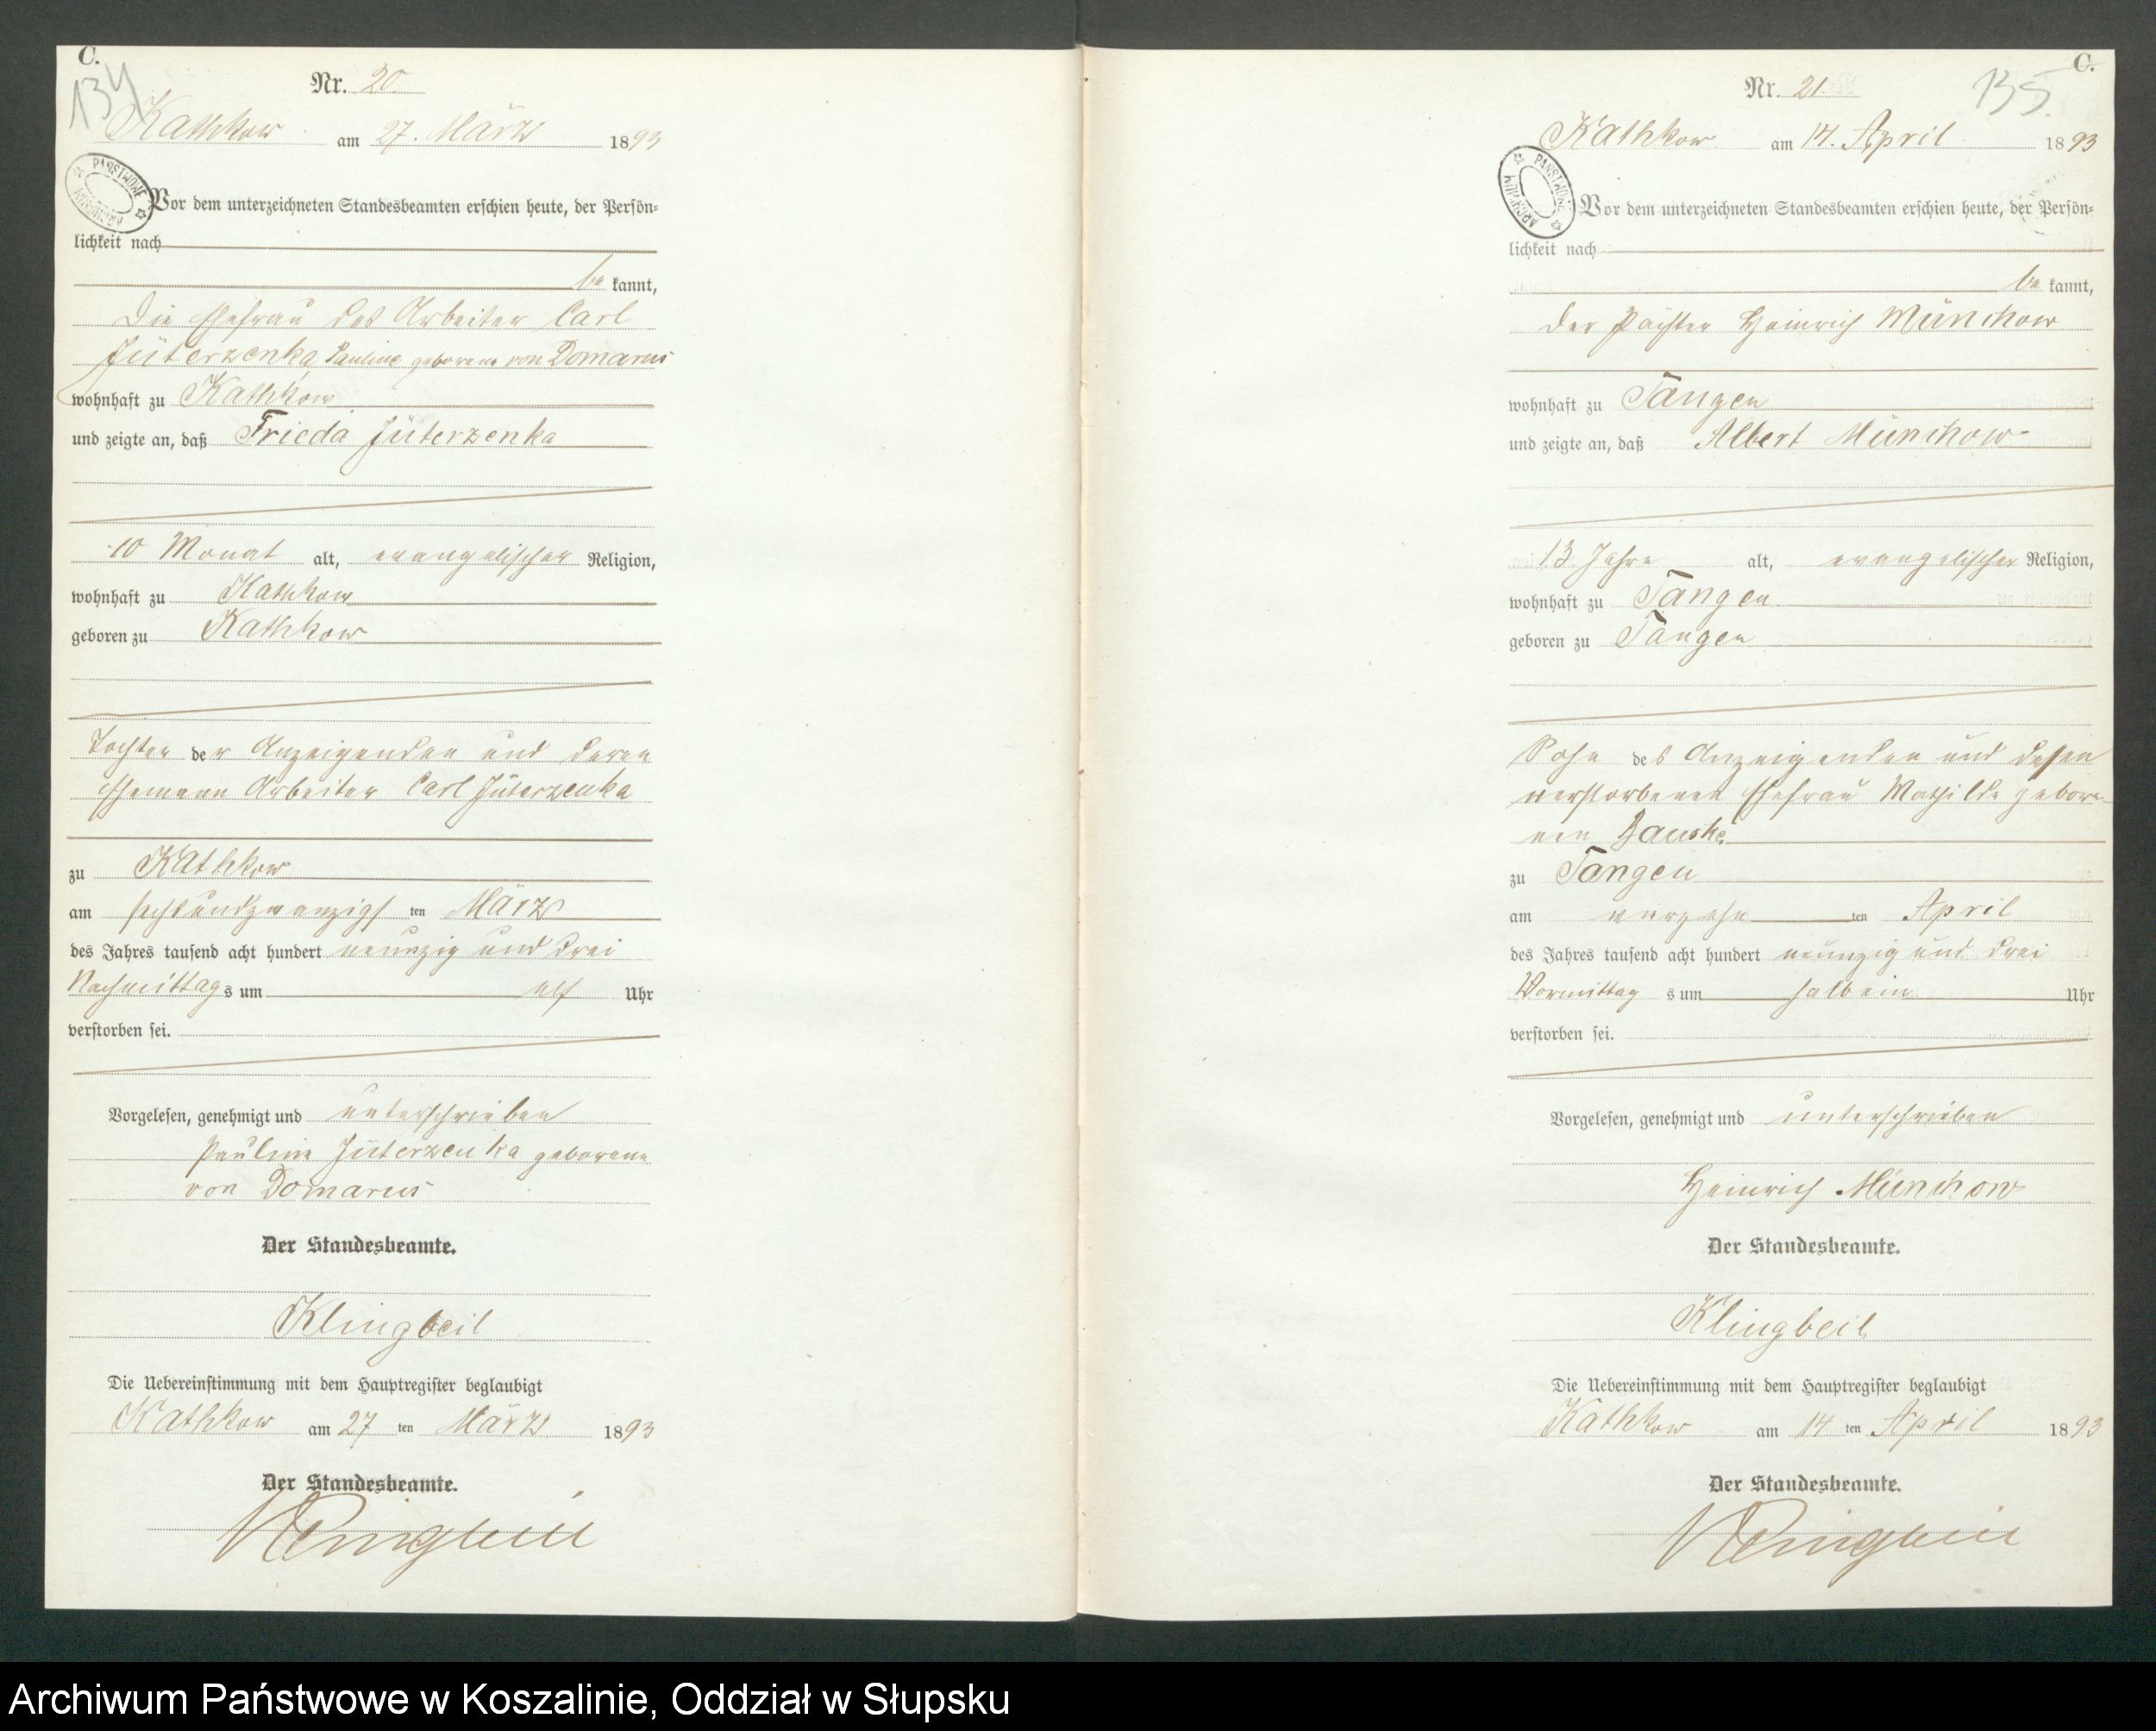 C.
134
Nr. 20
Kathkow am 27. März 1893
PAŃSTWOWE ARCHIWUM
Vor dem unterzeichneten Standesbeamten erschien heute, der Persön=
lichkeit nach
be kannt,
Die Ehefrau des Arbeiter Carl
Jüterzenka, Pauline geborene von Domarus
wohnhaft zu Kathkow
und zeigte an, daß Frieda Jüterzenka
10 Monat alt, evangelischer Religion,
wohnhaft zu Kathkow
geboren zu Kathkow
Tochter der Anzeigenden und deren
Ehemann Arbeiter Carl Jüterzenka
zu Kathkow
am sechsundzwanzigsten März
des Jahres tausend acht hundert neunzig und drei
Nachmittags um elf Uhr
verstorben sei.
Vorgelesen, genehmigt und unterschrieben
Pauline Jüterzenka geborene
von Domarus
Der Standesbeamte.
Klingbeil
Die Uebereinstimmung mit dem Hauptregister beglaubigt
Kathkow am 27 ten März 1893
Der Standesbeamte.
Klingbeil
C.
135
Nr. 21
Kathkow am 14. April 1893
PAŃSTWOWE ARCHIWUM
Vor dem unterzeichneten Standesbeamten erschien heute, der Persön=
lichkeit nach
be kannt,
der Pächter Heinrich Münchow
wohnhaft zu Tangen
und zeigte an, daß Albert Münchow
13 Jahre alt, evangelischer Religion,
wohnhaft zu Tangen
geboren zu Tangen
Sohn des Anzeigenden und dessen
verstorbenen Ehefrau Mathilde gebore-
nen Bauske
zu Tangen
am vierzehn ten April
des Jahres tausend acht hundert neunzig und drei
Vormittag s um halb ein Uhr
verstorben sei.
Vorgelesen, genehmigt und unterschrieben
Heinrich Münchow
Der Standesbeamte.
Klingbeil
Die Uebereinstimmung mit dem Hauptregister beglaubigt
Kathkow am 14 ten April 1893
Der Standesbeamte.
Klingbeil
Archiwum Państwowe w Koszalinie, Oddział w Słupsku